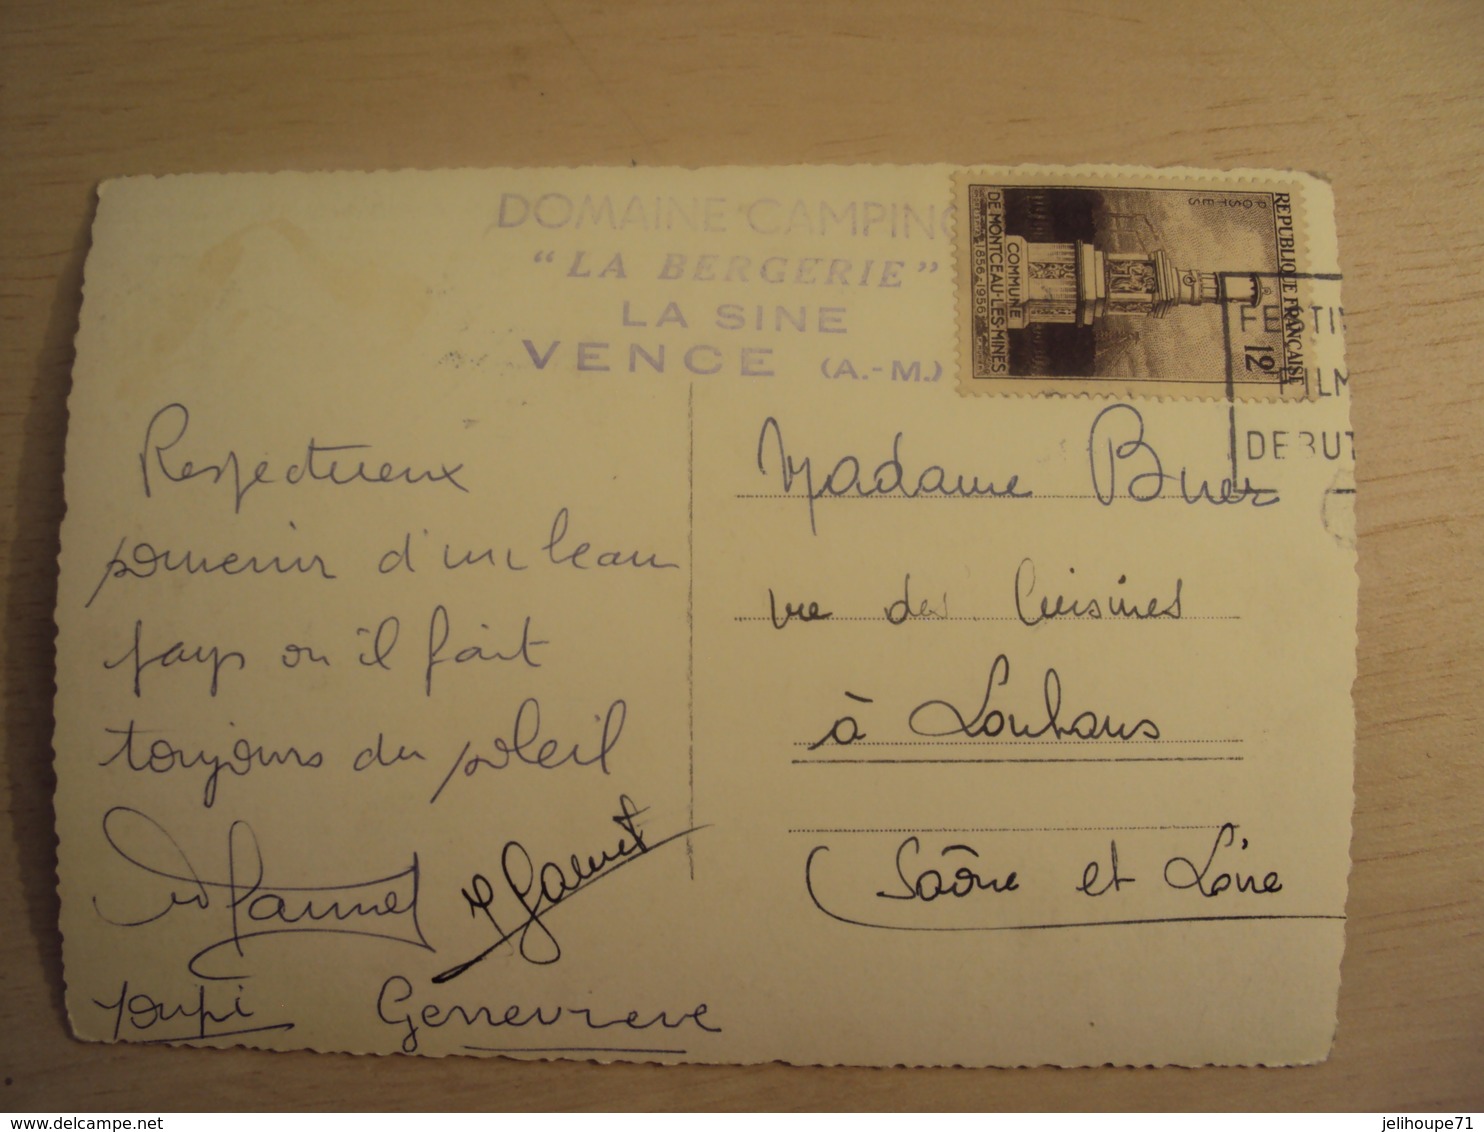 DOMAINE CAMPING
"LA BERGERIE"
LA SINE
VENCE (A.-M.)
REPUBLIQUE FRANÇAISE
POSTES
12F
COMMUNE
DE MONTCEAU-LES-MINES
1856-1956
FESTIV
FILM
DEBUT
Respectueux
souvenir d'un beau
pays ou il fait
toujours du soleil
Youpi
Genevieve
Madame Buer
rue des Cuisines
à Louhans
(Saône et Loire
jelihoupe71